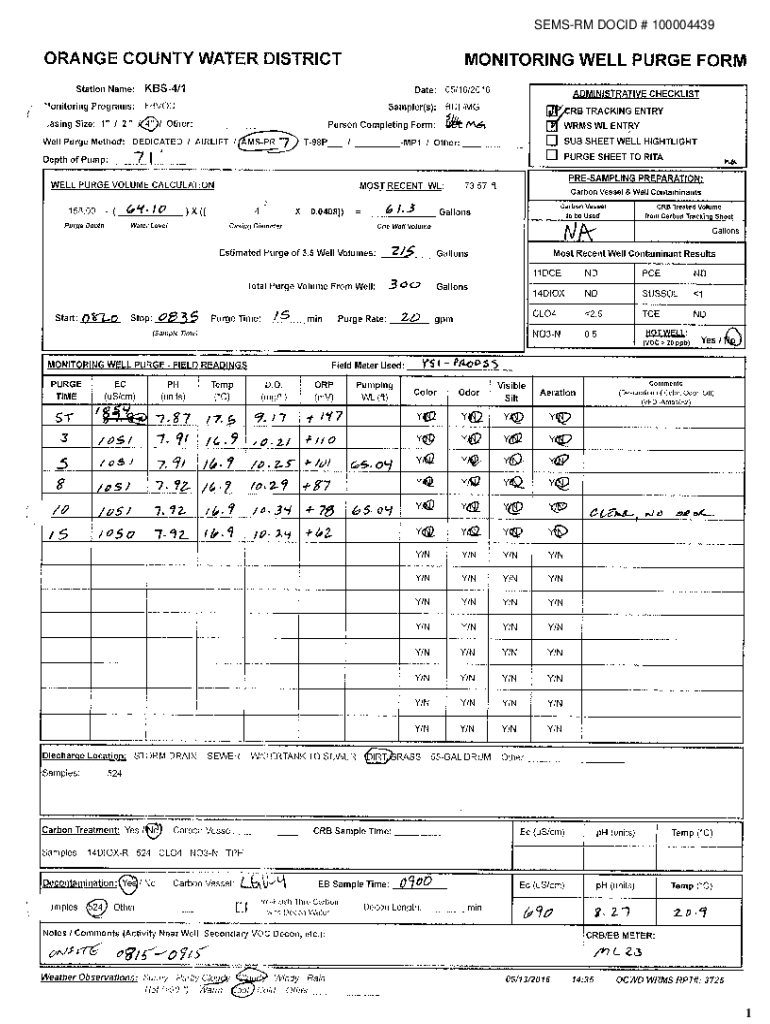 SEMS-RM DOCID # 100004439
ORANGE COUNTY WATER DISTRICT MONITORING WELL PURGE FORM
Station Name: KBS-4/1 Date: 05/16/2016
Monitoring Programs: Sampler(s):
Casing Size: 1" / 2" / 4" / Other: Person Completing Form: MG
Well Purge Method: DEDICATED / AIRLIFT / AMS-PR 7 / T-98P / -MP1 / Other:
Depth of Pump: 71'
ADMINISTRATIVE CHECKLIST
CRB TRACKING ENTRY
WRMS WL ENTRY
SUB SHEET WELL HIGHTLIGHT
PURGE SHEET TO RITA NA
WELL PURGE VOLUME CALCULATION MOST RECENT WL: 73.57 ft
- ( 64.10 ) X (( 4 X 0.0408)) = 61.3 Gallons
Purge Depth Water Level Casing Diameter One Well Volume
Estimated Purge of 3.5 Well Volumes: 215 Gallons
Total Purge Volume From Well: 300 Gallons
Start: 0820 Stop: 0835 Purge Time: 15 min Purge Rate: 20 gpm
(Sample Time)
PRE-SAMPLING PREPARATION:
Carbon Vessel & Well Contaminants
Carbon Vessel to be Used CRB Treated Volume from Carbon Tracking Sheet
NA Gallons
Most Recent Well Contaminant Results
11DCE ND PCE ND
14DIOX ND SUSSOL <1
CLO4 <2.5 TCE ND
NO3-N 0.5 HOTWELL: (VOC > 20 ppb) Yes / No
MONITORING WELL PURGE - FIELD READINGS Field Meter Used: YSI - PRODSS
PURGE TIME EC (uS/cm) PH (units) Temp (°C) D.O. (mg/L) ORP (mV) Pumping WL (ft) Color Odor Visible Silt Aeration Comments
ST 1054 7.87 17.5 9.17 +147 Y/N Y/N Y/N Y/N
3 1051 7.91 16.9 10.21 +110 Y/N Y/N Y/N Y/N
5 1051 7.91 16.9 10.25 +101 65.04 Y/N Y/N Y/N Y/N
8 1051 7.92 16.9 10.29 +87 Y/N Y/N Y/N Y/N
10 1051 7.92 16.9 10.34 +78 65.04 Y/N Y/N Y/N Y/N CLEAR, NO ODOR
15 1050 7.92 16.9 10.24 +62 Y/N Y/N Y/N Y/N
Y/N Y/N Y/N Y/N
Y/N Y/N Y/N Y/N
Y/N Y/N Y/N Y/N
Y/N Y/N Y/N Y/N
Y/N Y/N Y/N Y/N
Y/N Y/N Y/N Y/N
Y/N Y/N Y/N Y/N
Y/N Y/N Y/N Y/N
Discharge Location: STORM DRAIN SEWER WATERTANK TO SEWER DIRT/GRASS 55-GAL DRUM Other
Samples: 524
Carbon Treatment: Yes / No Carbon Vessel CRB Sample Time: Ec (uS/cm) pH (units) Temp (°C)
Samples 14DIOX-R 524 CLO4 NO3-N TPH
Decontamination: Yes / No Carbon Vessel: LGU-4 EB Sample Time: 0900 Ec (uS/cm) pH (units) Temp (°C)
Samples 524 Other Decon Water Decon Length: min 690 8.27 20.9
Notes / Comments (Activity Near Well, Secondary VOC Decon, etc.): CRB/EB METER:
ONSITE 0815-0915 ML 23
Weather Observations: Sunny Partly Cloudy Cloudy Windy Rain
Warm Cool Cold Other 05/13/2016 14:35 OCWD WRMS RPT#: 3725
1